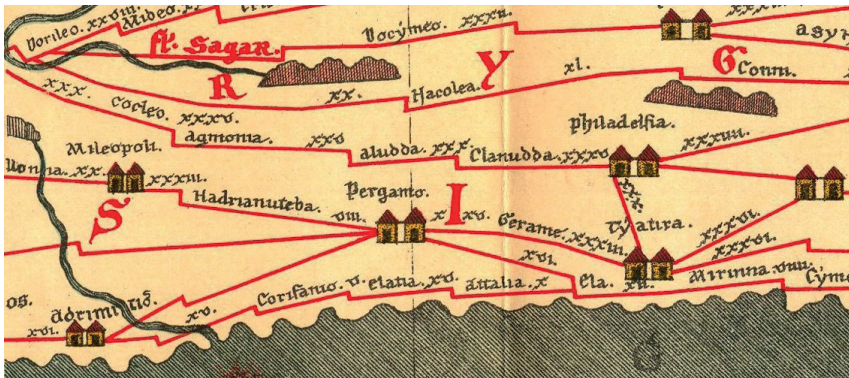 Dorileo. xxviii.
Mideo.
fl. Sagar.
Docymeo. xxxii.
R
Y
G
xxx.
Cocleo. xxxv.
xx.
Hacolea.
xl.
Conni.
agmonia. xxv
aludda. xxx.
Clanudda. xxxv
philadelfia.
xxxiiii.
Mileopoli.
xx.
xxxiii.
Hadrianuteba. viii.
Pergamo.
xxv.
S
I
Gerame. xxxiii.
xxx.
Tyatira.
xxxvi.
xvi.
xxxvi.
os.
adrimitio
xvi.
xv.
Corifanio. v.
elatia. xv.
attalia. x
Ela. xii.
Mirinna. viiii.
Cyme